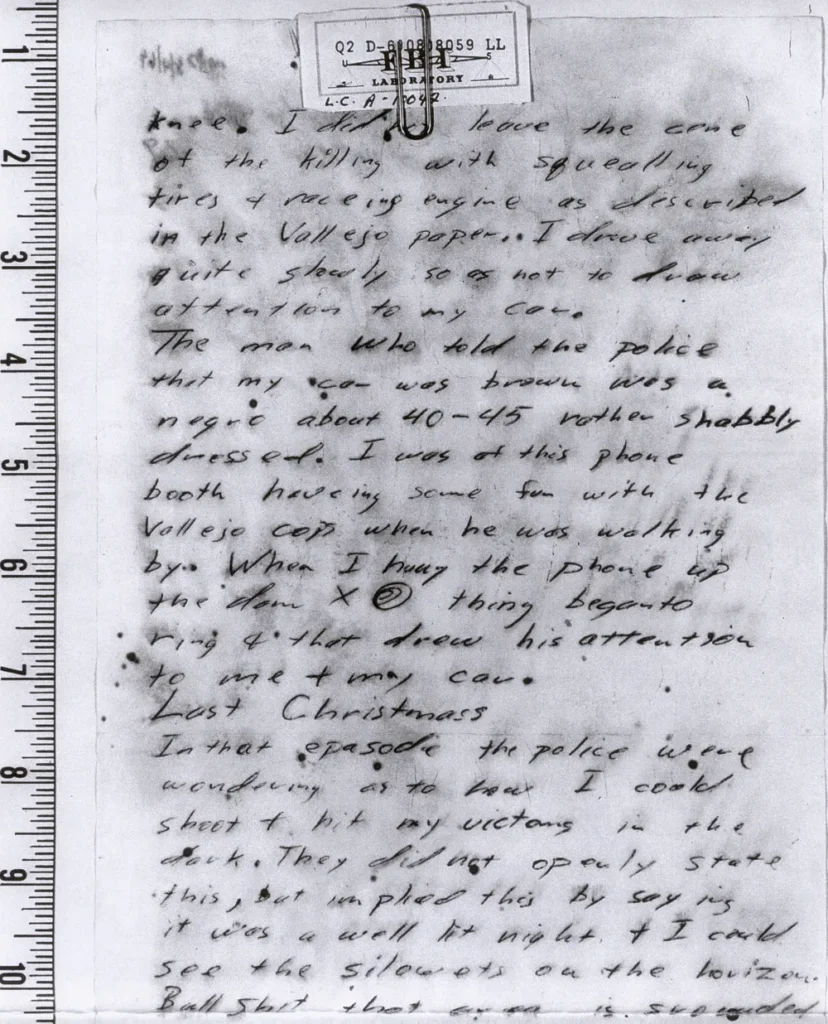 Q2 D-690808059 LL
FBI
LABORATORY
L.C. A-10042
knee. I did not leave the cene
of the killing with squealling
tires + raceing engine as described
in the Vallejo paper,. I drove away
quite slowly so as not to draw
attention to my car.
The man who told the police
that my car was brown was a
negro about 40-45 rather shabbly
dressed. I was at this phone
booth haveing some fun with the
Vallejo cops when he was walking
by. When I hung the phone up
the dam X thing beganto
ring & that drew his attention
to me + my car.
Last Christmass
In that epasode the police were
wondering as to how I could
shoot + hit my victoms in the
dark. They did not openly state
this, but implied this by saying
it was a well lit night + I could
see the silowets on the horizon.
Bullshit that area is srounded
1
2
3
4
5
6
7
8
9
10